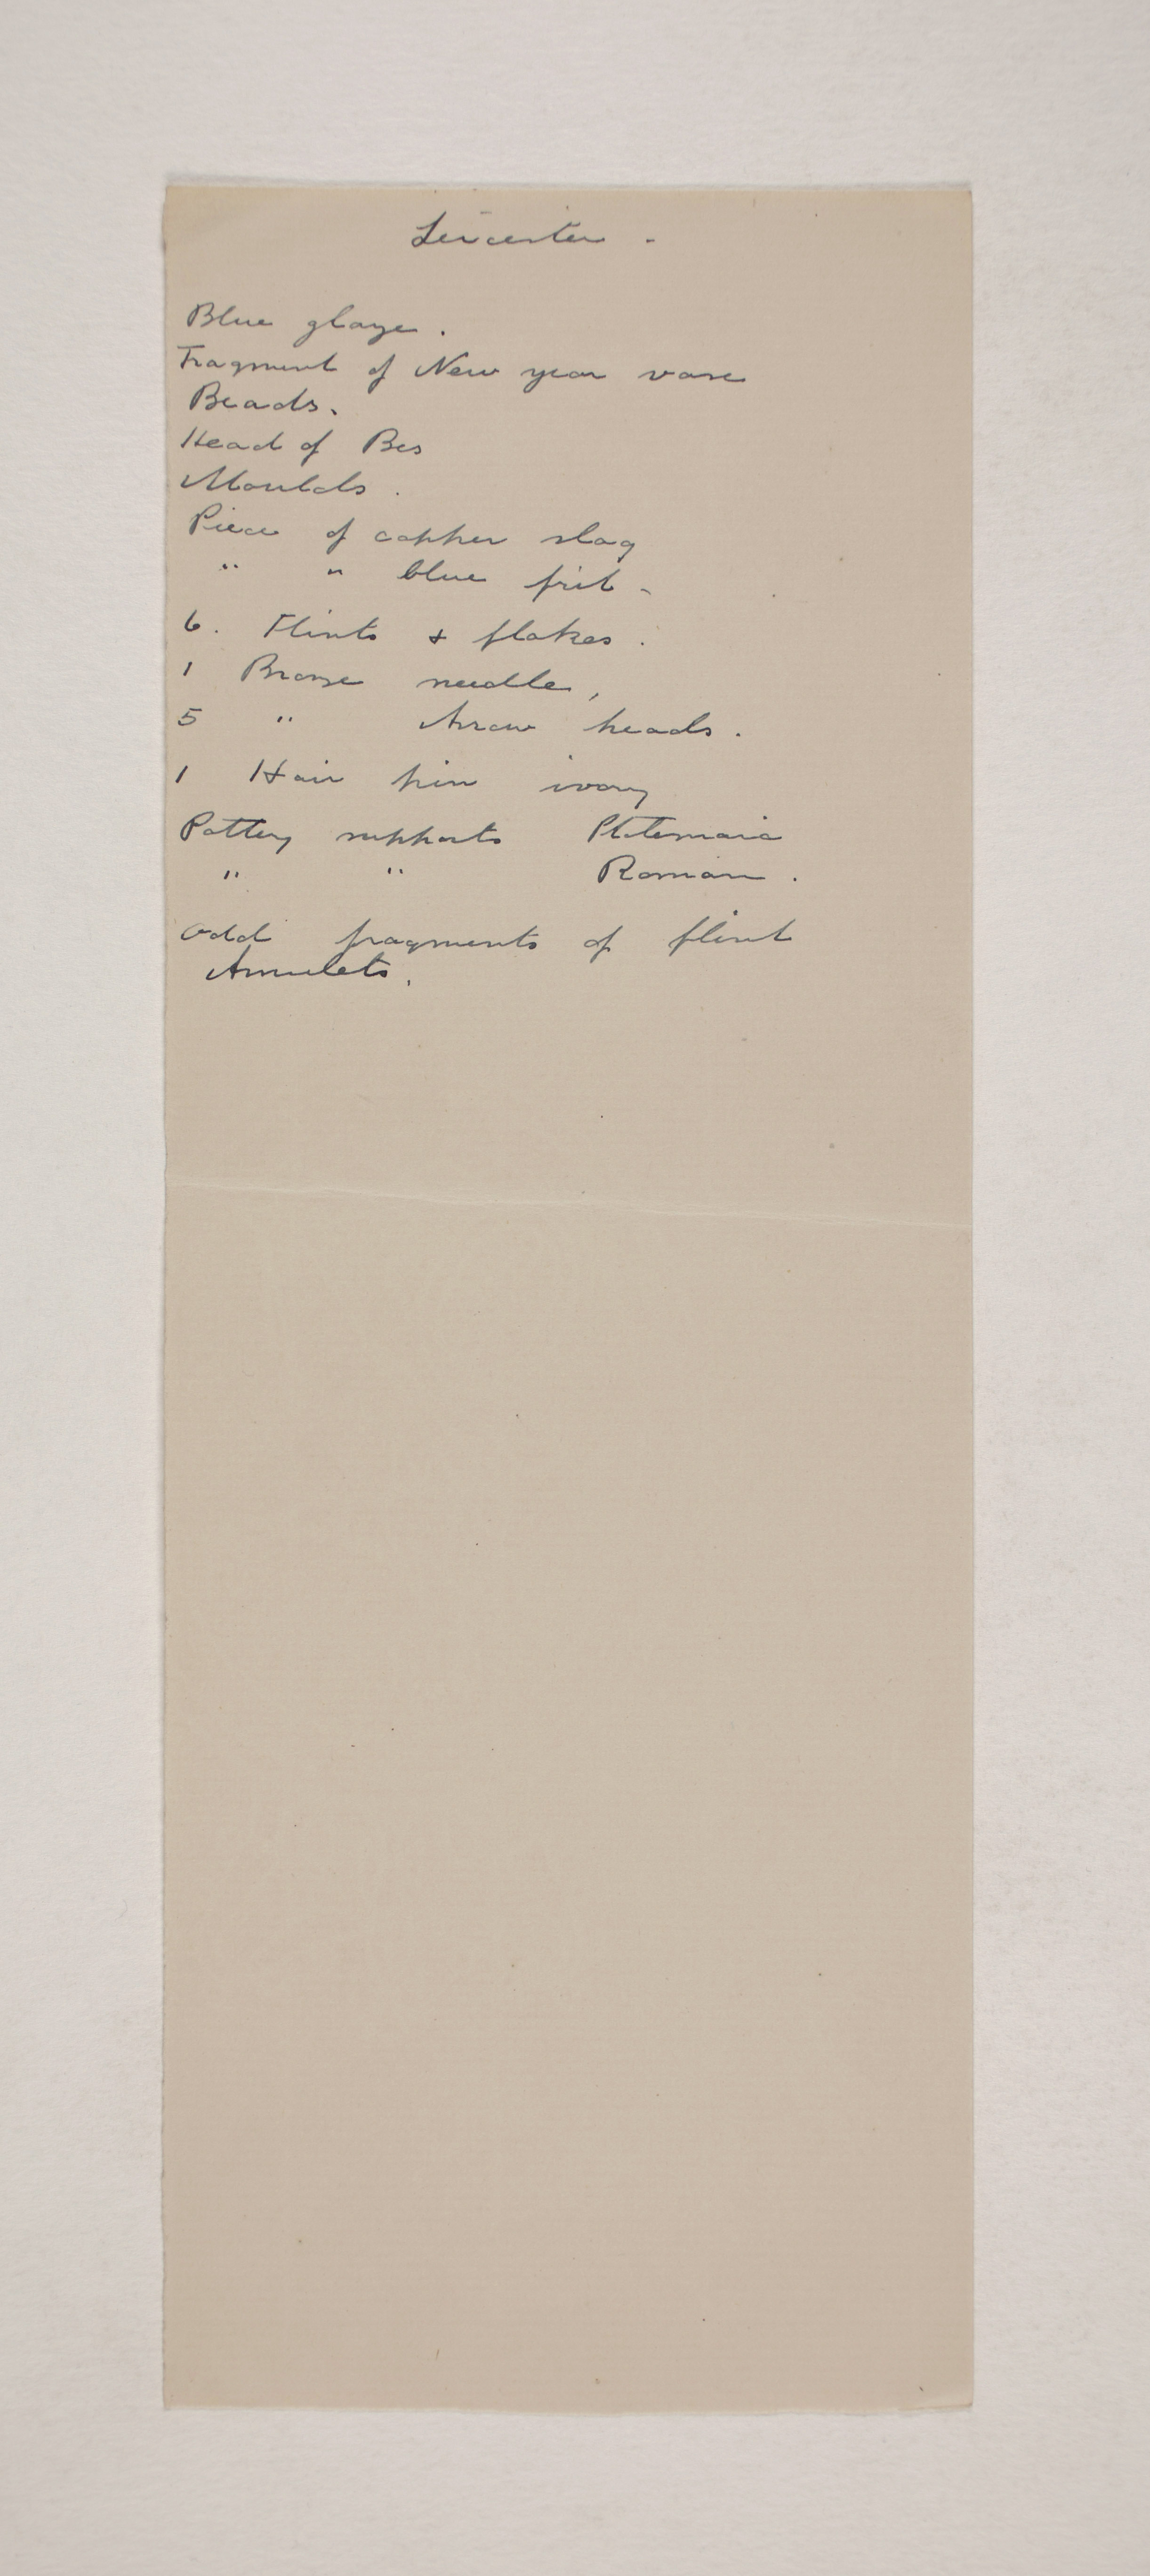 Leicester -
Blue glaze.
Fragment of New year vase
Beads.
Head of Bes
Moulds.
Piece of copper slag
" " blue frit -
6. Flints & flakes.
1 Bronze needle,
5 " Arrow heads.
1 Hair pin ivory
Pottery supports Ptolemaic
" " Roman.
Odd fragments of flint
Amulets.